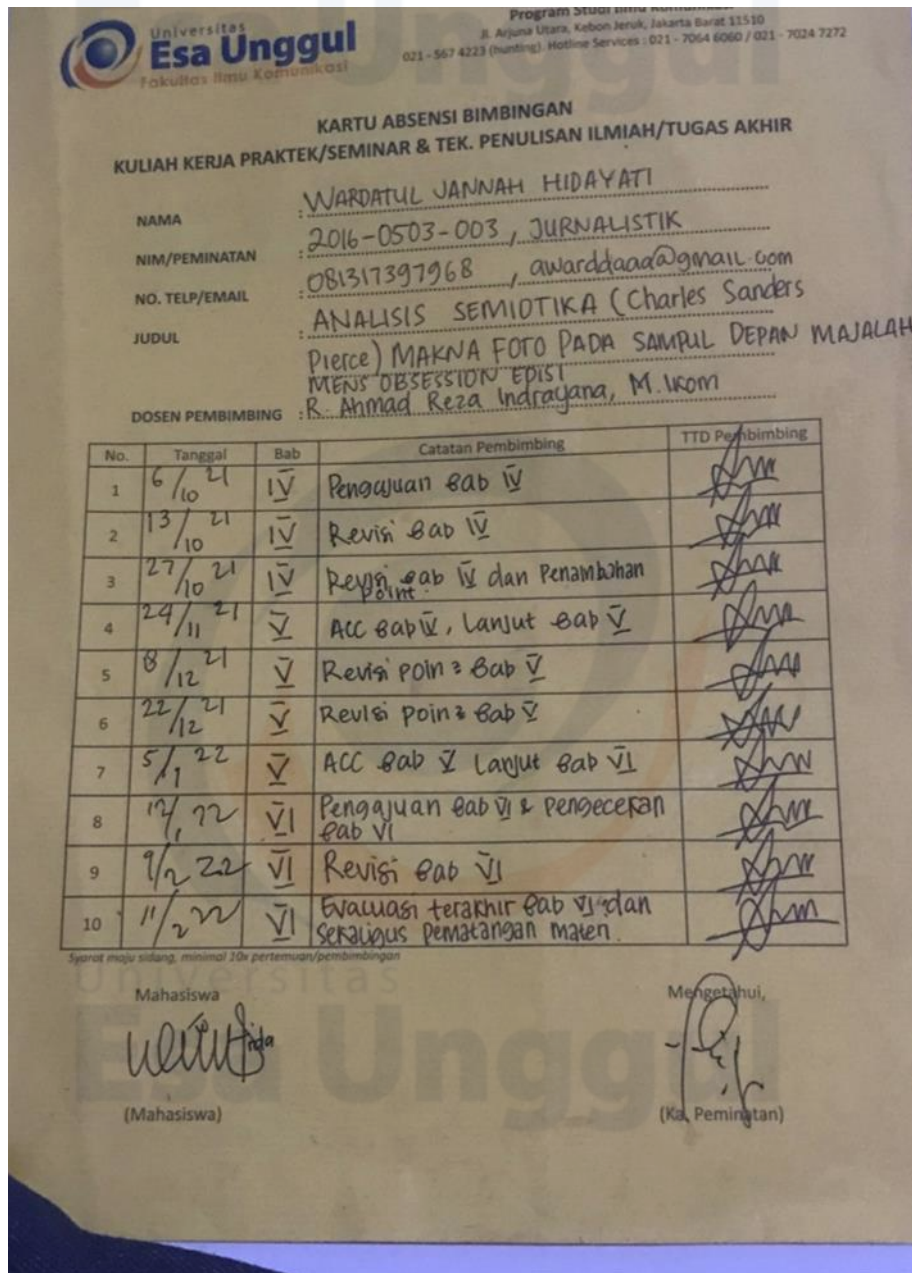 Universitas
Esa Unggul
Fakultas Ilmu Komunikasi
Program Studi Ilmu Komunikasi
Jl. Arjuna Utara, Kebon Jeruk, Jakarta Barat 11510
021 - 567 4223 (hunting). Hotline Services : 021 - 7064 6060 / 021 - 7024 7272
KARTU ABSENSI BIMBINGAN
KULIAH KERJA PRAKTEK/SEMINAR & TEK. PENULISAN ILMIAH/TUGAS AKHIR
NAMA : WARDATUL JANNAH HIDAYATI
NIM/PEMINATAN : 2016-0503-003, JURNALISTIK
NO. TELP/EMAIL : 081317397968, awarddaaa@gmail.com
JUDUL : ANALISIS SEMIOTIKA (Charles Sanders
Pierce) MAKNA FOTO PADA SAMPUL DEPAN MAJALAH
MENS OBSESSION EDISI
DOSEN PEMBIMBING : R. Ahmad Reza Indrayana, M.Ikom
No. Tanggal Bab Catatan Pembimbing TTD Pembimbing
1 6/10 21 IV Pengajuan Bab IV
2 13/10 21 IV Revisi Bab IV
3 27/10 21 IV Revisi Bab IV dan Penambahan
point
4 24/11 21 V ACC Bab IV, Lanjut Bab V
5 8/12 21 V Revisi poin2 Bab V
6 22/12 21 V Revisi poin2 Bab V
7 5/1 22 V ACC Bab V Lanjut Bab VI
8 22 VI Pengajuan Bab VI & pengecekan
Bab VI
9 9/2 22 VI Revisi Bab VI
10 11/2 22 VI Evaluasi terakhir Bab VI dan
sekaligus pematangan materi.
Syarat maju sidang, minimal 10x pertemuan/pembimbingan
Universitas
Esa Unggul
Mahasiswa Mengetahui,
(Mahasiswa) (Ka. Peminatan)